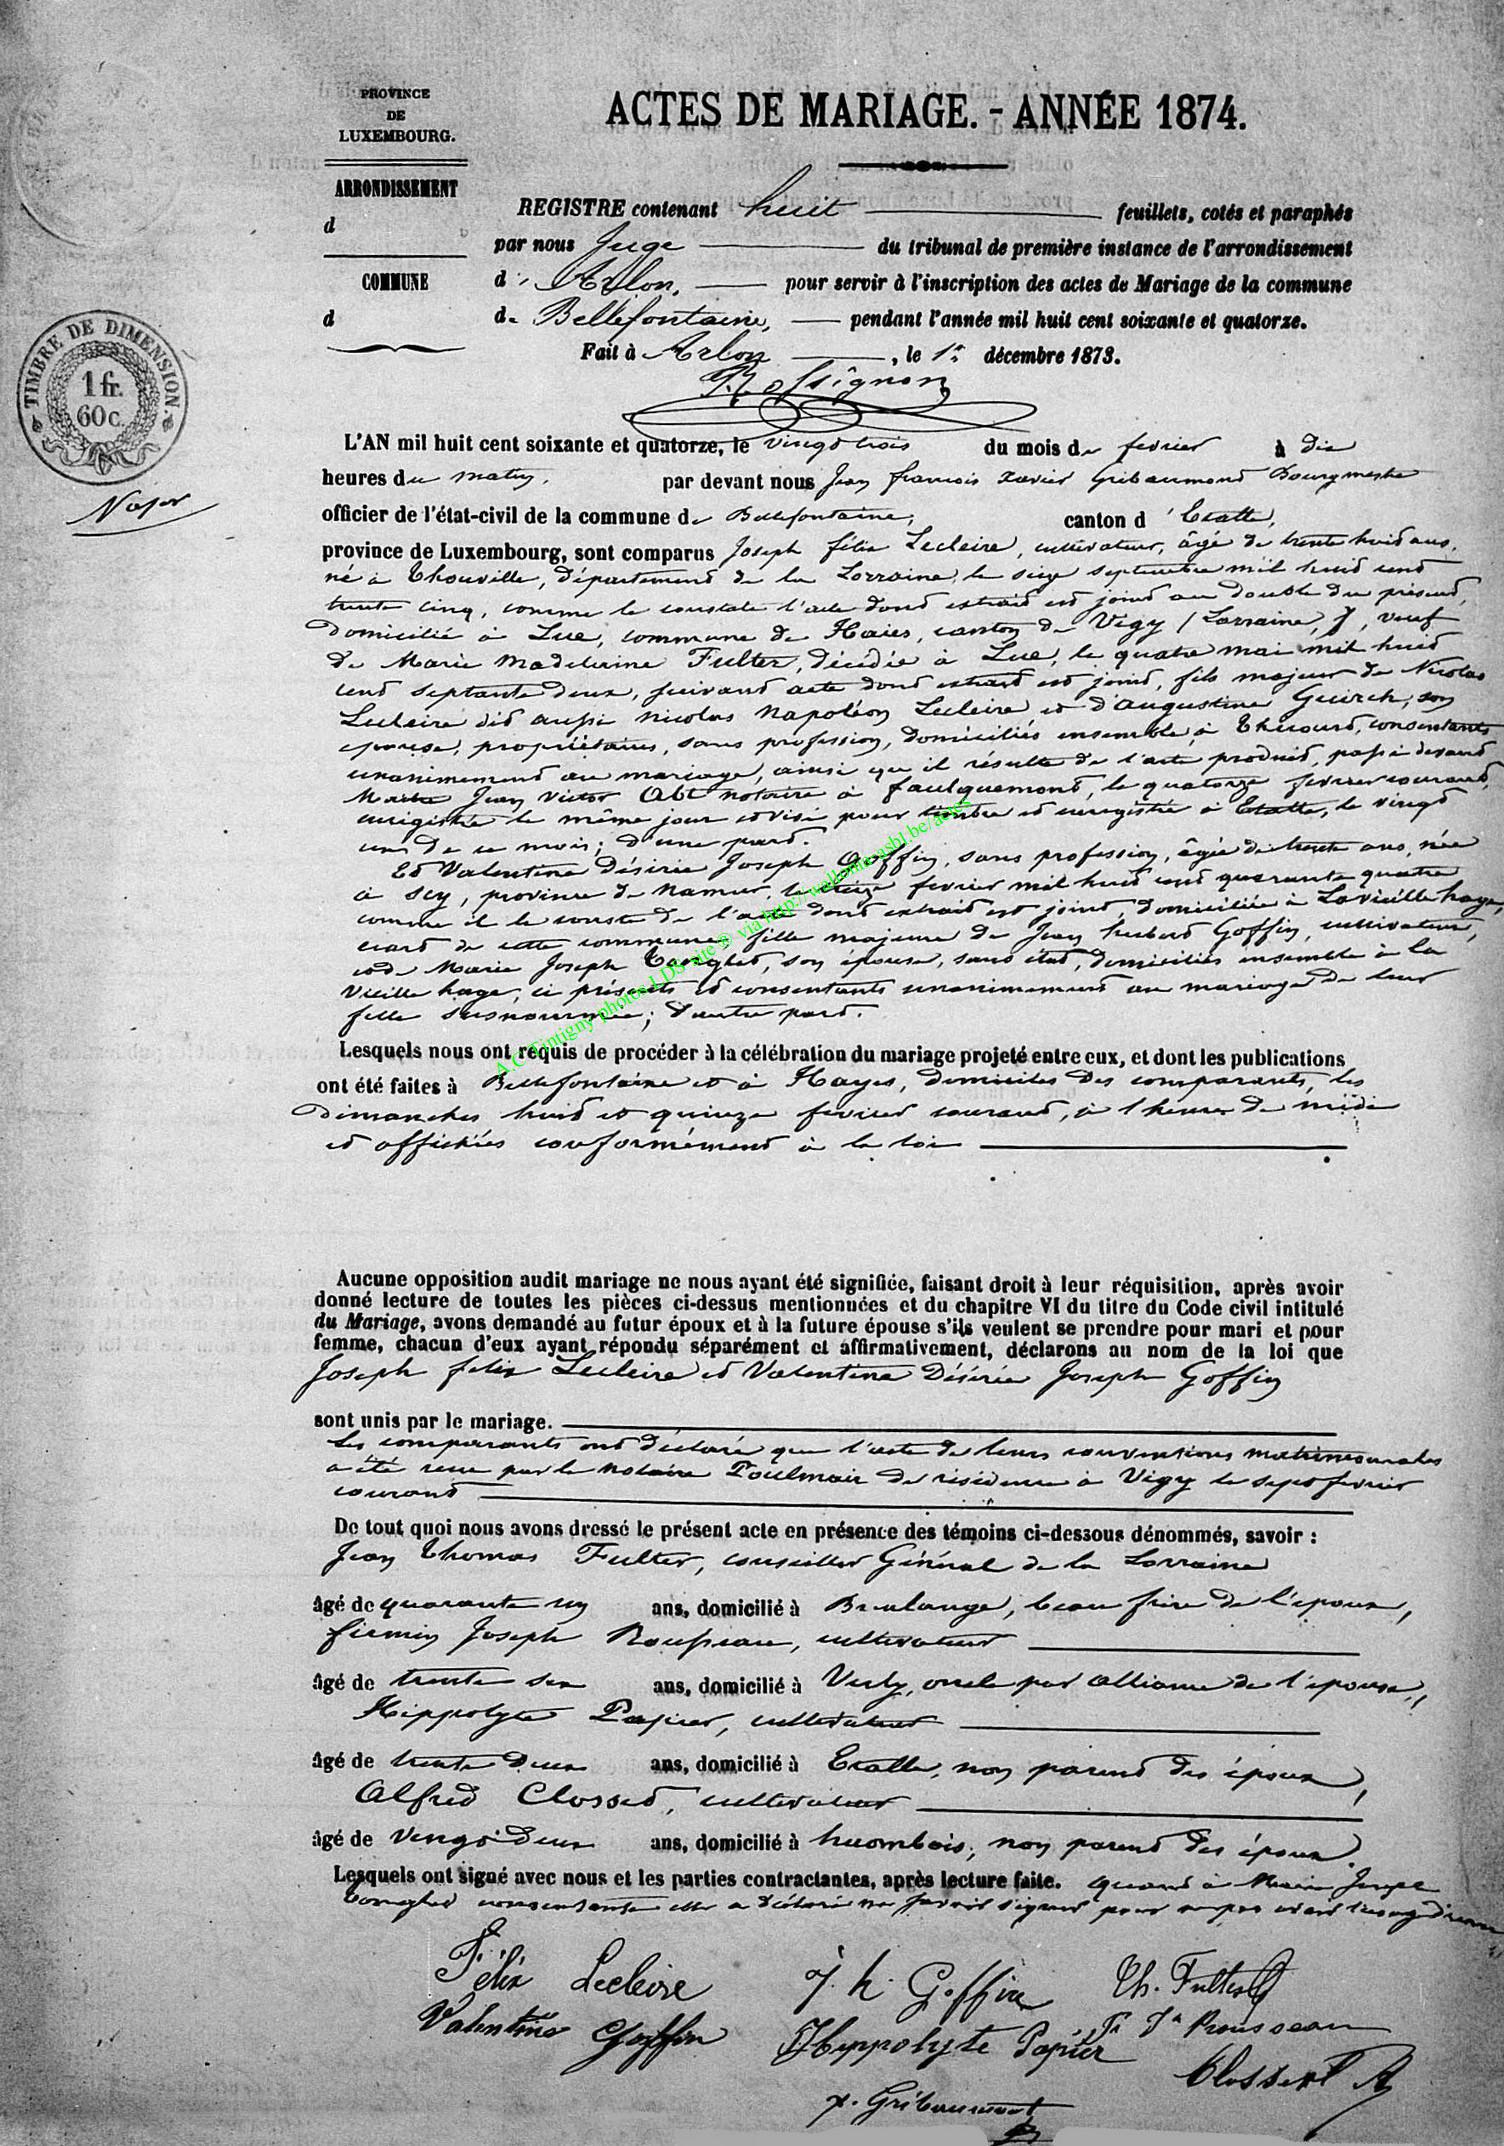 PROVINCE
DE
LUXEMBOURG.
ARRONDISSEMENT
d
COMMUNE
d
TIMBRE DE DIMENSION.
1 fr.
60 c.
ACTES DE MARIAGE. - ANNÉE 1874.
REGISTRE contenant huit feuillets, cotés et paraphés
par nous Juge du tribunal de première instance de l'arrondissement
d' Arlon, pour servir à l'inscription des actes de Mariage de la commune
de Bellefontaine, pendant l'année mil huit cent soixante et quatorze.
Fait à Arlon, le 1er décembre 1873.
Rossignon
L'AN mil huit cent soixante et quatorze, le vingt trois du mois de fevrier à dix
heures du matin, par devant nous Jean françois Xavier Gribaumont Bourgmestre
officier de l'état-civil de la commune de Bellefontaine, canton d' Etalle,
province de Luxembourg, sont comparus Joseph félix Lecleire, cultivateur, âgé de trente huit ans,
né à Thonville, département de la Lorraine, le seize septembre mil huit cent
trente cinq, comme le constate l'acte dont extrait est joint au double du présent,
domicilié à Lue, commune de Haies, canton de Vigy (Lorraine), veuf
de Marie Madeleine Fulter, décédée à Lue, le quatre mai mil huit
cent septante deux, suivant acte dont extrait est joint, fils majeur de Nicolas
Lecleire dit aussi Nicolas Napoléon Lecleire et d'Augustine Guirch, son
épouse, propriétaires, sans profession, domiciliés ensemble à Thicourt, consentants
unanimement au mariage, ainsi qu'il résulte de l'acte produit, passé devant
Maître Jean Victor Abt notaire à faulquemont, le quatorze fevrier courant,
enrégistré le même jour et visé pour timbre et enregistré à Etalle, le vingt
un de ce mois; d'une part.
Et Valentine Désirée Joseph Goffin, sans profession, âgée de trente ans, née
à Scy, province de Namur, le treize fevrier mil huit cent quarante quatre
comme il le conste de l'acte dont extrait est joint, domiciliée à Lavieille haye,
écart de cette commune, fille majeure de Jean hubert Goffin, cultivateur,
et de Marie Joseph Tonglet, son épouse, sans état, domiciliés ensemble à la
Vieille haye, ci présents et consentants unanimement au mariage de leur
fille susnommée; d'autre part.
A.C. Tintigny photos LDS site ® via http://wallonia.asbl.be/actes
Lesquels nous ont requis de procéder à la célébration du mariage projeté entre eux, et dont les publications
ont été faites à Bellefontaine et à Hayes, domiciles des comparants, les
dimanches huit et quinze fevrier courant, à l'heure de midi
et affichées conformément à la loi
Aucune opposition audit mariage ne nous ayant été signifiée, faisant droit à leur réquisition, après avoir
donné lecture de toutes les pièces ci-dessus mentionnées et du chapitre VI du titre du Code civil intitulé
du Mariage, avons demandé au futur époux et à la future épouse s'ils veulent se prendre pour mari et pour
femme, chacun d'eux ayant répondu séparément et affirmativement, déclarons au nom de la loi que
Joseph félix Lecleire et Valentine Désirée Joseph Goffin
sont unis par le mariage.
Les comparants ont déclaré que l'acte de leurs conventions matrimoniales
a été reçu par le notaire Poulmair de résidence à Vigy le sept fevrier
courant
De tout quoi nous avons dressé le présent acte en présence des témoins ci-dessous dénommés, savoir :
Jean Thomas Fulter, conseiller Général de la Lorraine
âgé de quarante un ans, domicilié à Brulange, beau frère de l'époux,
firmin Joseph Rousseau, cultivateur
âgé de trente six ans, domicilié à Verly, oncle par alliance de l'épouse,
Hippolyte Papier, cultivateur
âgé de trente deux ans, domicilié à Etalle, non parent des époux,
Alfred Closset, cultivateur
âgé de vingt deux ans, domicilié à huombois, non parent des époux.
Lesquels ont signé avec nous et les parties contractantes, après lecture faite. quant à Marie Joseph
Tonglet consentante elle a déclaré ne savoir signer pour ne pas avoir l'usage d'écrire
Félix Lecleire J. h. Goffin Th. Fulter
Valentine Goffin Hippolyte Papier Fn Jh Rousseau
Closset A
x. Gribaumont